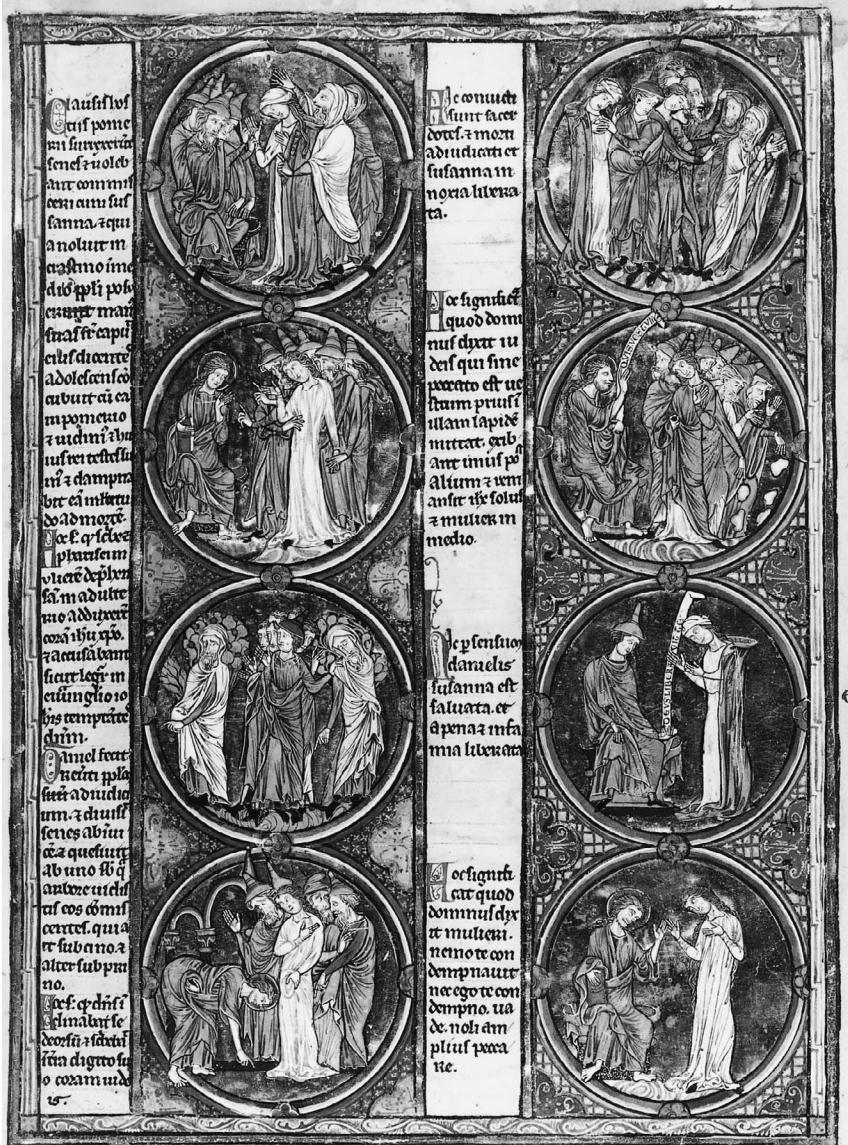 Clausis hos
tiis pome
rii surrexerūt
senes ⁊ uoleb
ant commis
ceri cum sus
sanna. ⁊ quia
noluit in
crastino ime
dio ppli posu
erunt man
super capiti
dicentes
adolescens cō
cubuit cū ea
in pomerio
⁊ uidim ⁊ hu
ius rei testes su
m ⁊ dampna
do ad mortē.
phariseum
sam in adulte
rio adduxerūt
corā ihu xpo.
⁊ accusabant
sicut legit in
euuangelio io
his temptātes
Daniel fecit
⁊ diuisit
senes ab inui
cē ⁊ quesiuit
ab uno sb q
arbore uidis
tis eos cōmis
centes. qui a
it sub cino. ⁊
alter sub pri
no.
clinabat se
deorsū ⁊ scbebat
ītra digito su
o coram iude
is.
Hic conuicti
sunt sacer
dotes. ⁊ morti
adiudicati et
susanna in
noxia libera
ta.
Hoc significat
quod domi
nus dixit iu
deis qui sine
peccato est ue
strum prius ī
illam lapidē
mittat. exib
ant unus pꝰ
alium ⁊ rem
ansit ihc solus
⁊ mulier in
medio.
Hic per sensum
danielis
susanna est
saluata. et
a pena ⁊ infa
mia liberata
Hoc signifi
cat quod
dominus dix
it mulieri.
nemo te con
dempnauit
nec ego te con
dempno. ua
de. noli am
plius pecca
re.